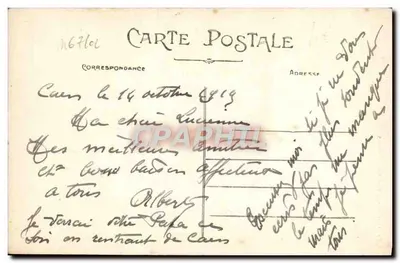 CARTE POSTALE
CORRESPONDANCE
ADRESSE
Caen le 14 octobre 1919
Ma chère Lucienne
Mes meilleures amitiés
et bons baisers affectueux
à tous Albert
Je verrai votre Papa ce
soir en rentrant de Caen
Excusez moi si je ne vous
écris pas plus
le temps me manque
mais je pense à
tous
CPARAMA